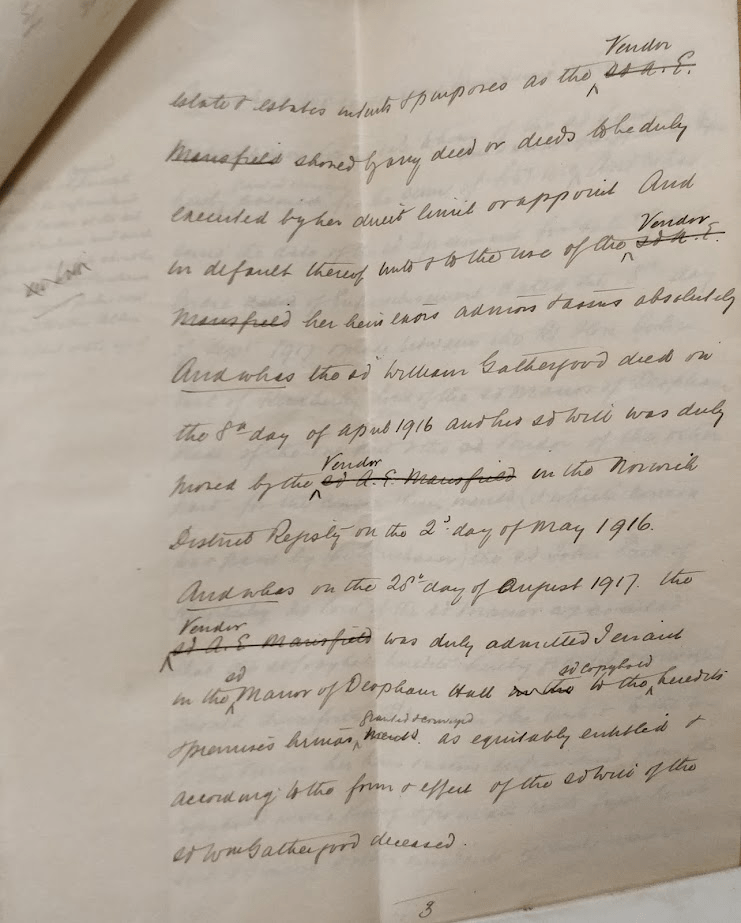 Vendor
estate & estates intents & purposes as the ^ sd A. E.
Mansfield should by any deed or deeds to be duly
executed by her direct limit or appoint And
Vendor
in default thereof unto & to the use of the ^ sd A. E.
Mansfield her heirs exors admors & assns absolutely
And whas the sd William Gathergood died on
the 8th day of April 1916 and his sd Will was duly
Vendor
proved by the ^ sd A. E. Mansfield in the Norwich
District Registy on the 2d day of May 1916.
And whas on the 28th day of August 1917 the
Vendor
^ sd A. E. Mansfield was duly admitted Tenant
sd sd copyhold
in the ^ Manor of Deopham Hall in the to the ^ heredits
granted & conveyed
& premises hrinas ^ mentd. as equitably entitled &
according to the form & effect of the sd Will of the
sd Wm Gathergood deceased.
3